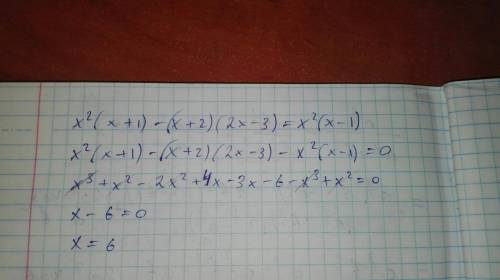 x²(x+1)-(x+2)(2x-3)=x²(x-1)
x²(x+1)-(x+2)(2x-3)-x²(x-1)=0
x³+x²-2x²+4x-3x-6-x³+x²=0
x-6=0
x=6